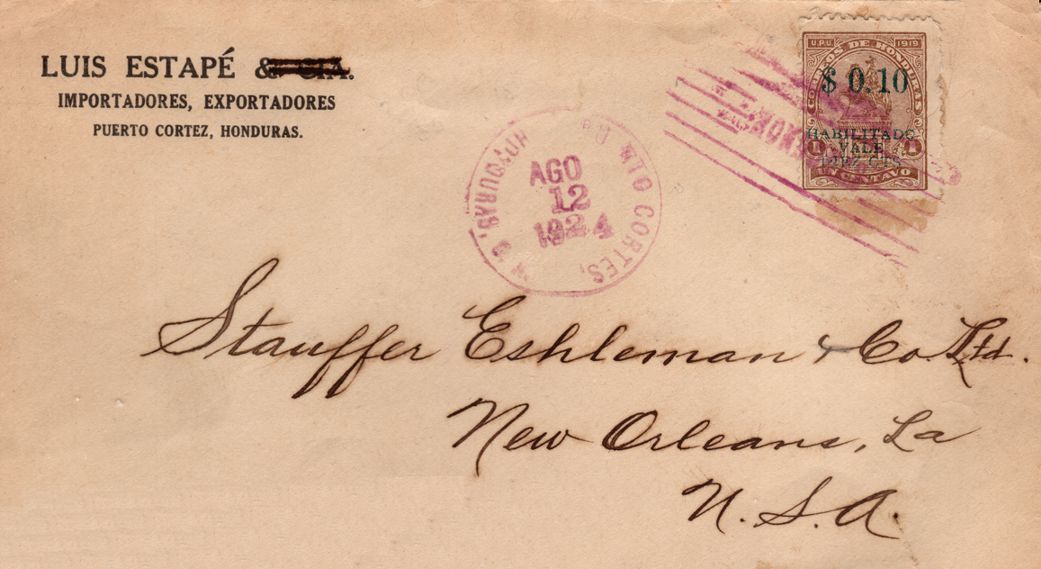 LUIS ESTAPÉ & CIA.
IMPORTADORES, EXPORTADORES
PUERTO CORTEZ, HONDURAS.
U.P.U. 1919
CORREOS DE HONDURAS
$ 0.10
HABILITADO
VALE
DIEZ CTS
1 1
UN CENTAVO
RTO CORTES, HONDURAS,
AGO
12
1924
Stauffer Eshleman & Co. Ltd.
New Orleans, La
U.S.A.